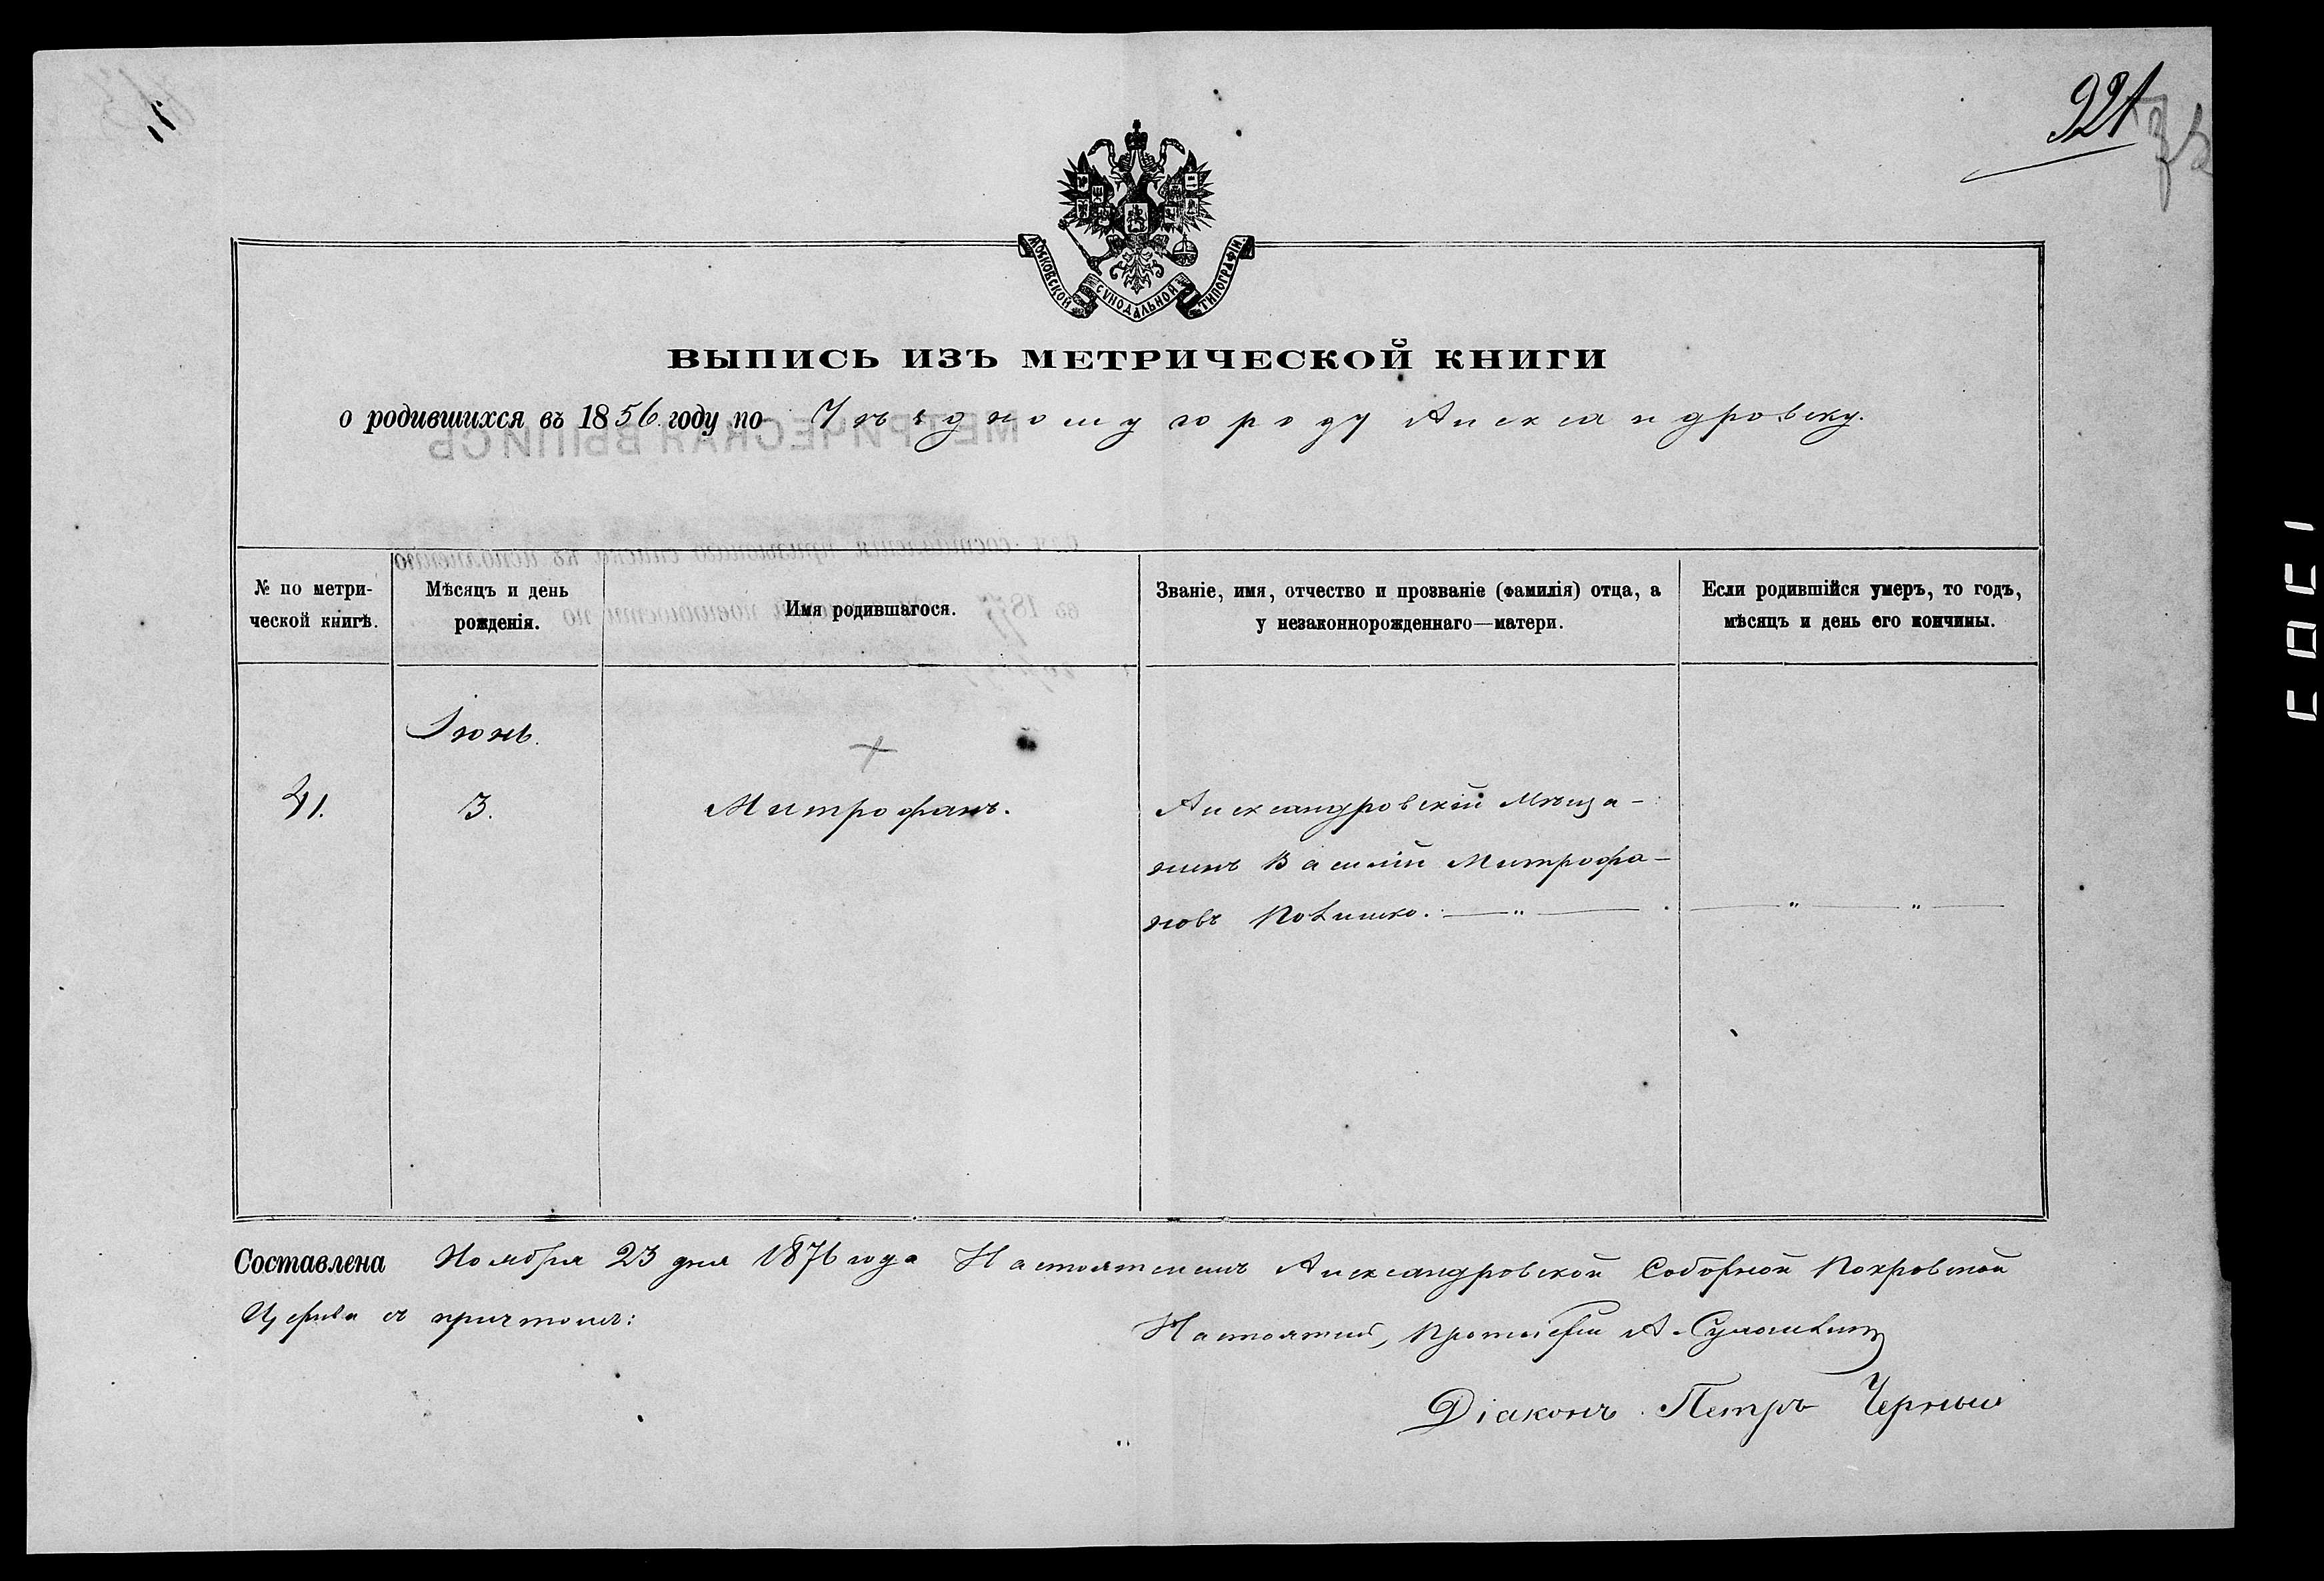 921
МОСКОВСКОЙ СѴНОДАЛЬНОЙ ТИПОГРАФІИ.
ВЫПИСЬ ИЗЪ МЕТРИЧЕСКОЙ КНИГИ
о родившихся въ 1856 году по Уѣздному городу Александровску.
№ по метри-
ческой книгѣ.
Мѣсяцъ и день
рожденія.
Имя родившагося.
Званіе, имя, отчество и прозваніе (фамилія) отца, а
у незаконнорожденнаго—матери.
Если родившійся умеръ, то годъ,
мѣсяцъ и день его кончины.
Іюнь.
41.
3.
Митрофанъ.
Александровскій Мѣща-
нинъ Василій Митрофа-
новъ
Составлена Ноября 23 дня 1876 года Настоятелемъ Александровской Соборной Покровской
Церкви съ причтомъ:
Настоятель, Протоіерей А.
Діаконъ Петръ Черный